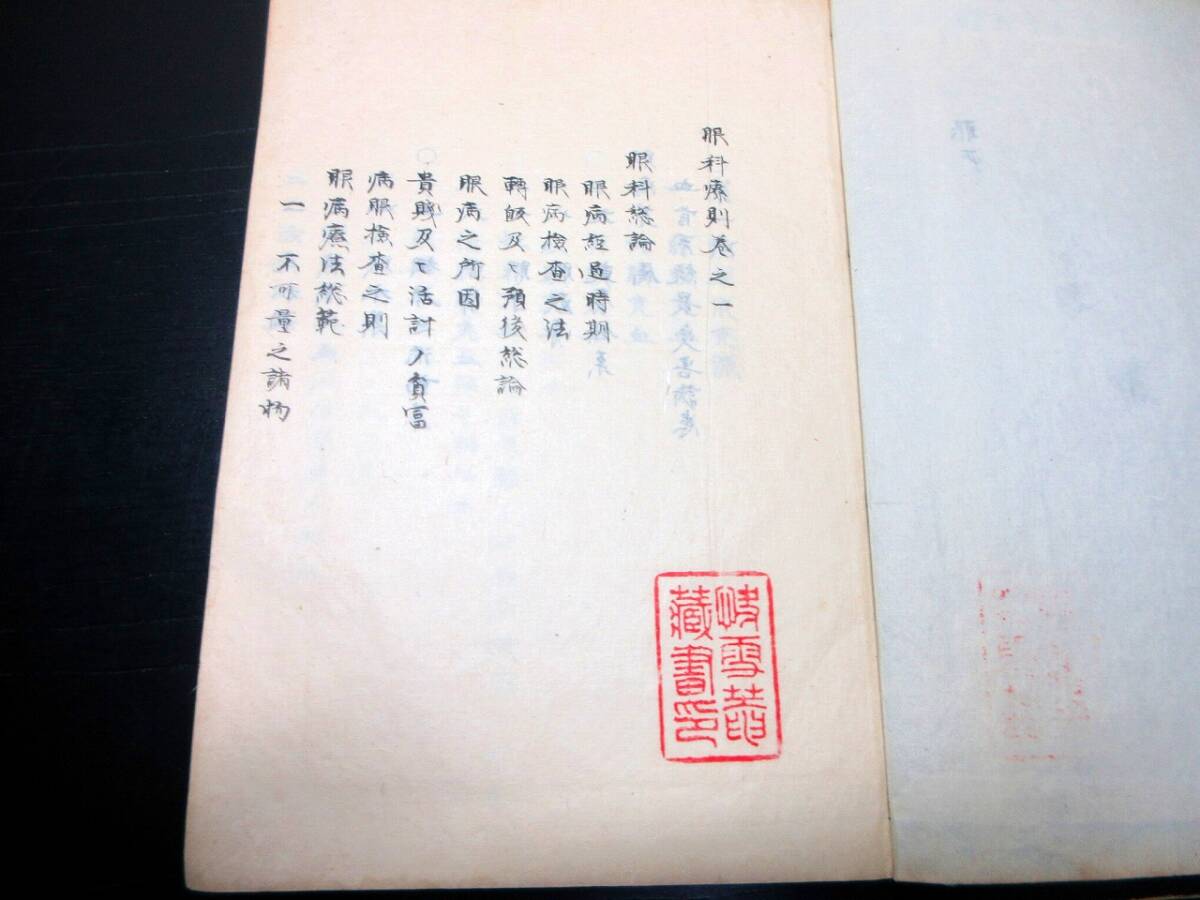 眼科療則巻之一
眼科総論
眼病経過時期
眼病検査之法
轉皈及ヒ預後総論
眼病之所因
○貴賤及ヒ活計ノ貧富
病眼検査之則
眼病療法総範
一 不可量之諸物
岐雪
藏書印